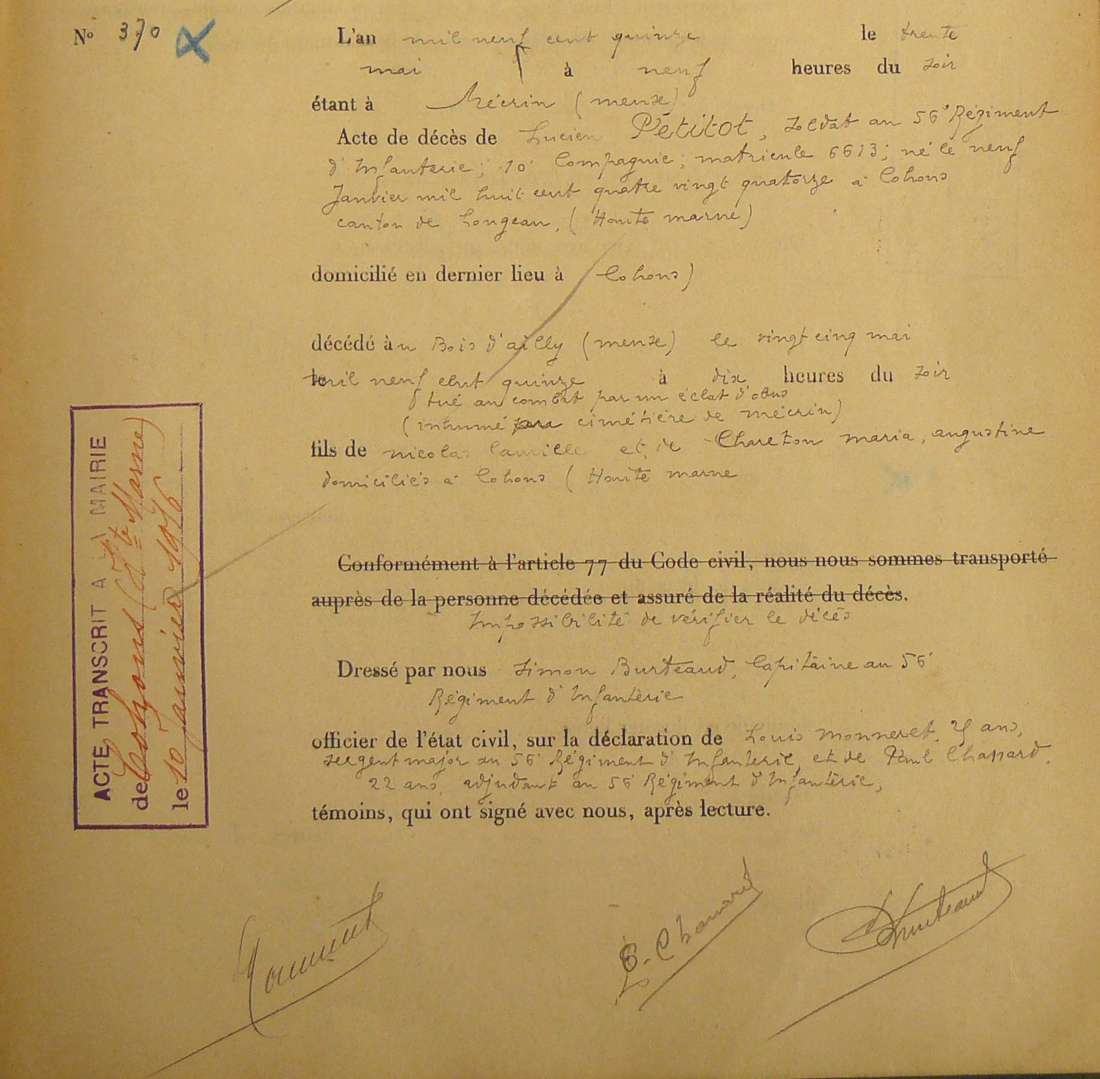 No 370
L'an mil neuf cent quinze le trente
mai à neuf heures du soir
étant à Mécrin (meuse)
Acte de décès de Lucien Petitot, soldat au 56e Régiment
d'Infanterie; 10e Compagnie; matricule 6613; né le neuf
Janvier mil huit cent quatre vingt quatorze à Cohons
canton de Longeau, (Haute marne)
domicilié en dernier lieu à Cohons)
décédé au Bois d'ailly (meuse) le vingt cinq mai
mil neuf cent quinze à dix heures du soir
tué au combat par un éclat d'obus
(inhumé au cimétière de mécrin)
fils de nicolas Camille et de Chareton maria, augustine
domiciliés à Cohons (Haute marne
Conformément à l'article 77 du Code civil, nous nous sommes transporté
auprès de la personne décédée et assuré de la réalité du décès.
Impossibilité de vérifier le décès
Dressé par nous Simon Burteaud, Capitaine au 56e
Régiment d'Infanterie
officier de l'état civil, sur la déclaration de Louis Monneret, ans,
sergent major au 56e Régiment d'Infanterie, et de Paul Chassard,
22 ans, adjudant au 56e Régiment d'Infanterie,
témoins, qui ont signé avec nous, après lecture.
ACTE TRANSCRIT A LA MAIRIE
de Cohons (Hte Marne)
le 10 Janvier 1916
Burteaud